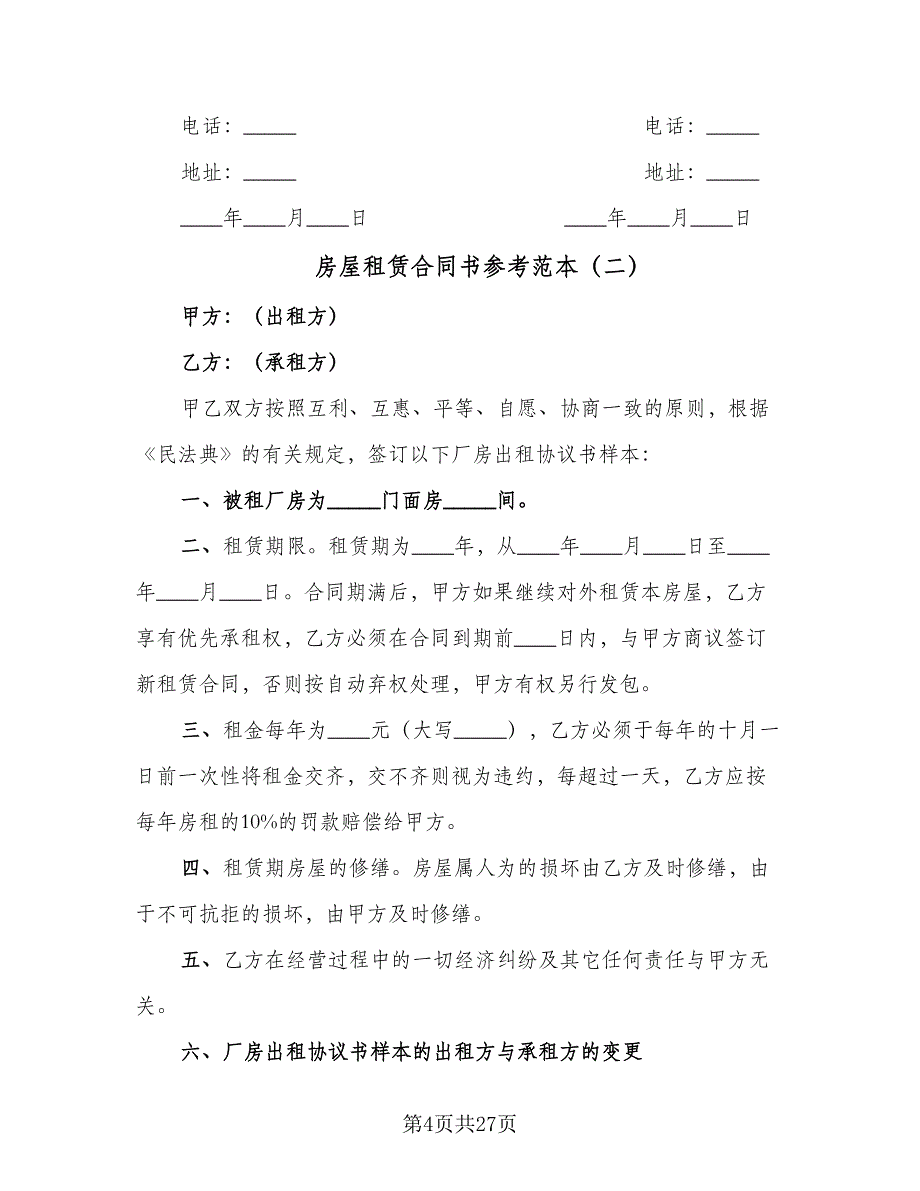 电话：_____ 电话：_____
地址：_____ 地址：_____
____年____月____日 ____年____月____日
房屋租赁合同书参考范本（二）
甲方：（出租方）
乙方：（承租方）
甲乙双方按照互利、互惠、平等、自愿、协商一致的原则，根据
《民法典》的有关规定，签订以下厂房出租协议书样本：
一、被租厂房为_____门面房_____间。
二、租赁期限。租赁期为____年，从____年____月____日至____
年____月____日。合同期满后，甲方如果继续对外租赁本房屋，乙方
享有优先承租权，乙方必须在合同到期前____日内，与甲方商议签订
新租赁合同，否则按自动弃权处理，甲方有权另行发包。
三、租金每年为____元（大写_____），乙方必须于每年的十月一
日前一次性将租金交齐，交不齐则视为违约，每超过一天，乙方应按
每年房租的10%的罚款赔偿给甲方。
四、租赁期房屋的修缮。房屋属人为的损坏由乙方及时修缮，由
于不可抗拒的损坏，由甲方及时修缮。
五、乙方在经营过程中的一切经济纠纷及其它任何责任与甲方无
关。
六、厂房出租协议书样本的出租方与承租方的变更
第4页共27页